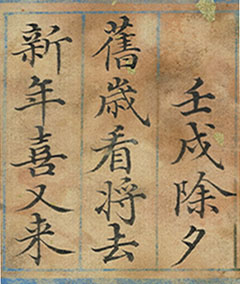 壬戌除夕
舊歳看将去
新年喜又来